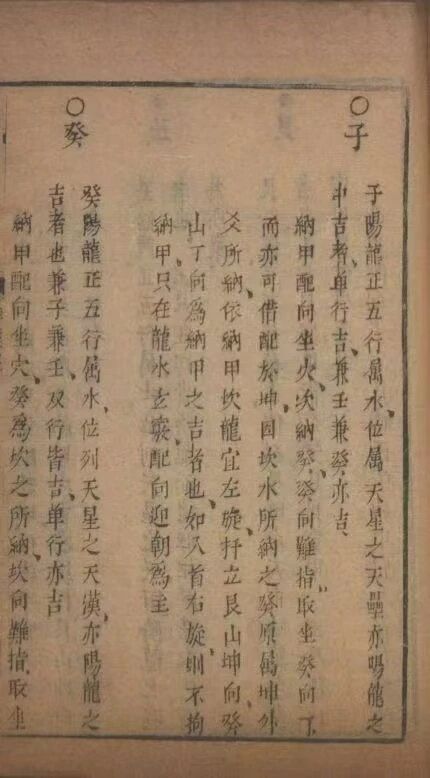 ○子
子陽龍正五行属水位属天星之天壘亦陽龍之
中吉者单行吉兼壬兼癸亦吉
納甲配向坐火坎納癸癸向難指取坐癸向丁
而亦可借配於坤因坎水所納之癸原属坤外
爻所納依納甲坎龍宜左旋扦立艮山坤向癸
山丁向為納甲之吉者也如入首右旋則不拘
納甲只在龍水玄竅配向迎朝為主
○癸
癸陽龍正五行属水位列天星之天漢亦陽龍之
吉者也兼子兼壬双行皆吉单行亦吉
納甲配向坐火癸為坎之所納坎向難指取坐